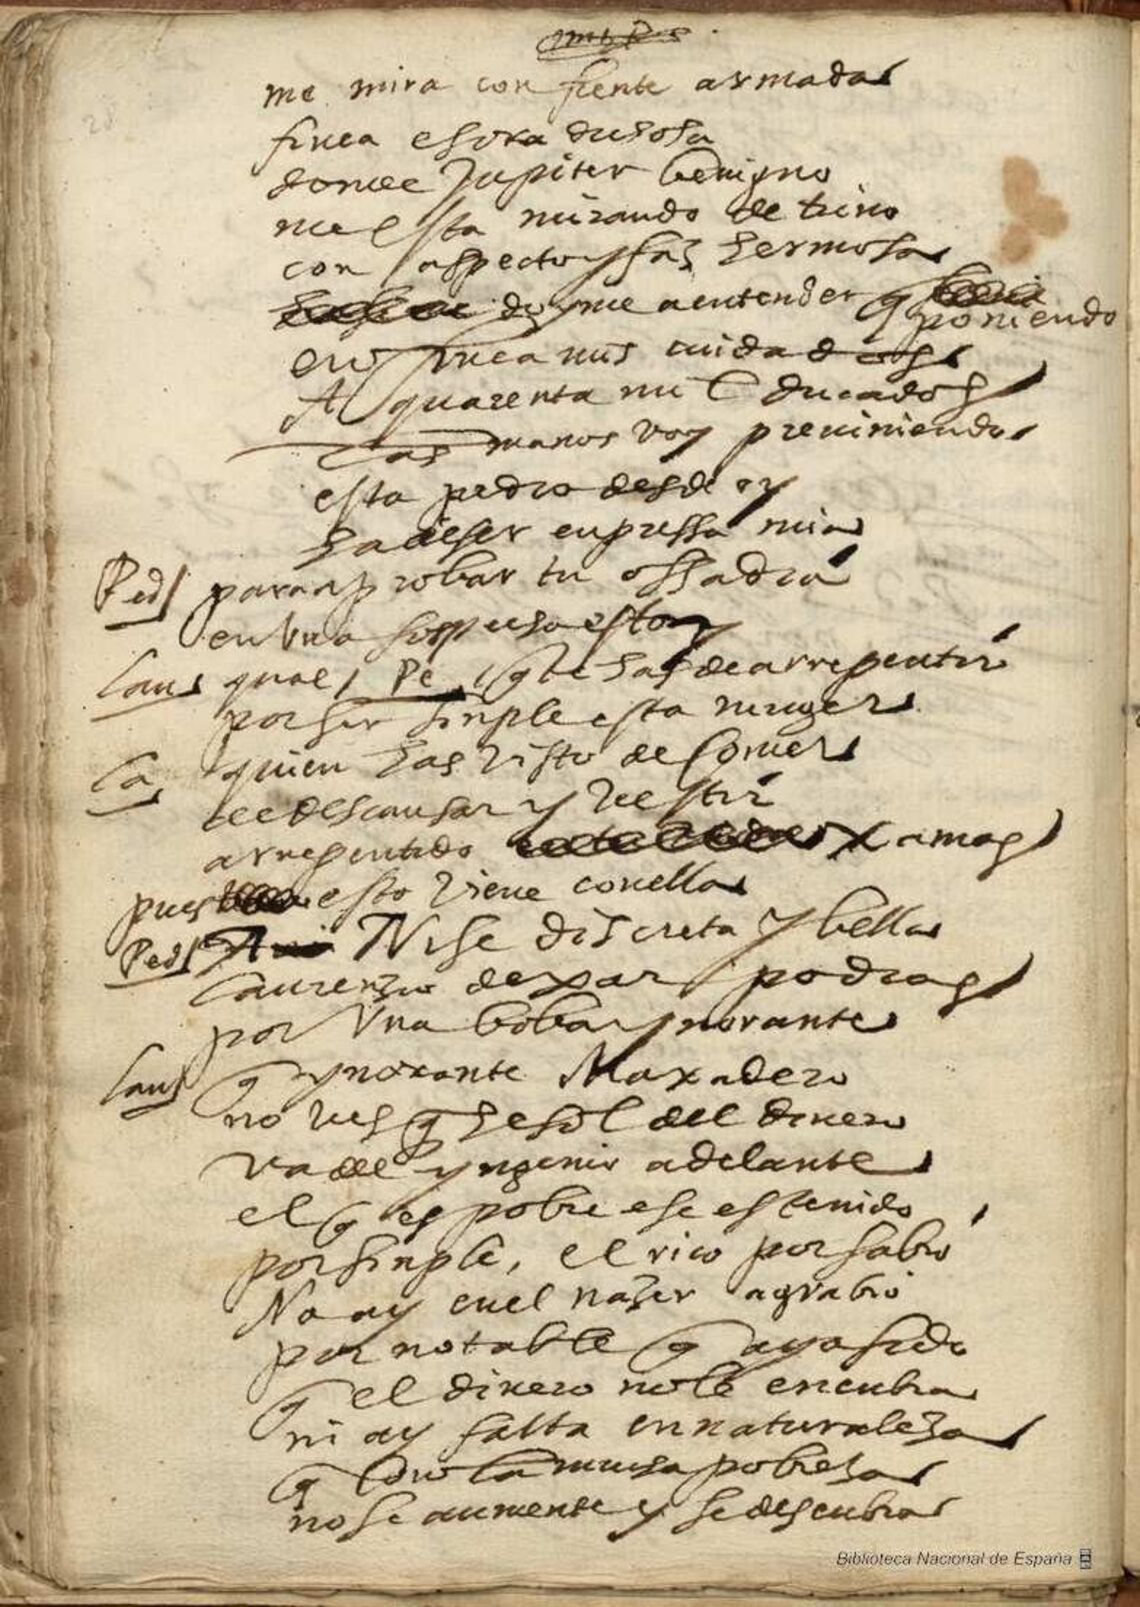 me mira con frente armada
finea es ora dichosa
donde Jupiter benigno
me esta mirando de trino
con aspecto y faz hermosa
doyme a entender q poniendo
en finea mis cuidados
A quarenta mil ducados
las manos voy previniendo
esta pedro desde oy
ha de ser enpressa mia
Ped/ para probar tu ossadia
en vna sospecha estoy
Lau qual / Pe / q te has de arrepentir
por ser sinple esta muger
La quien has visto de comer
de descansar y vestir
arrepentido xamas
pues esto viene con ella
Ped/ A Nise discreta y bella
Laurenzio dexar podras
por vna boba ynorante
Lau/ q ynorante Maxadero
no ves q el sol del dinero
va del yngenio adelante
el q es pobre ese es tenido
por sinple, el rico por sabio
No ay en el nazer agrabio
por notable q aya sido
q el dinero no le encubra
ni ay falta en naturaleza
q con la mucha pobreza
no se aumente y se descubra
Biblioteca Nacional de España